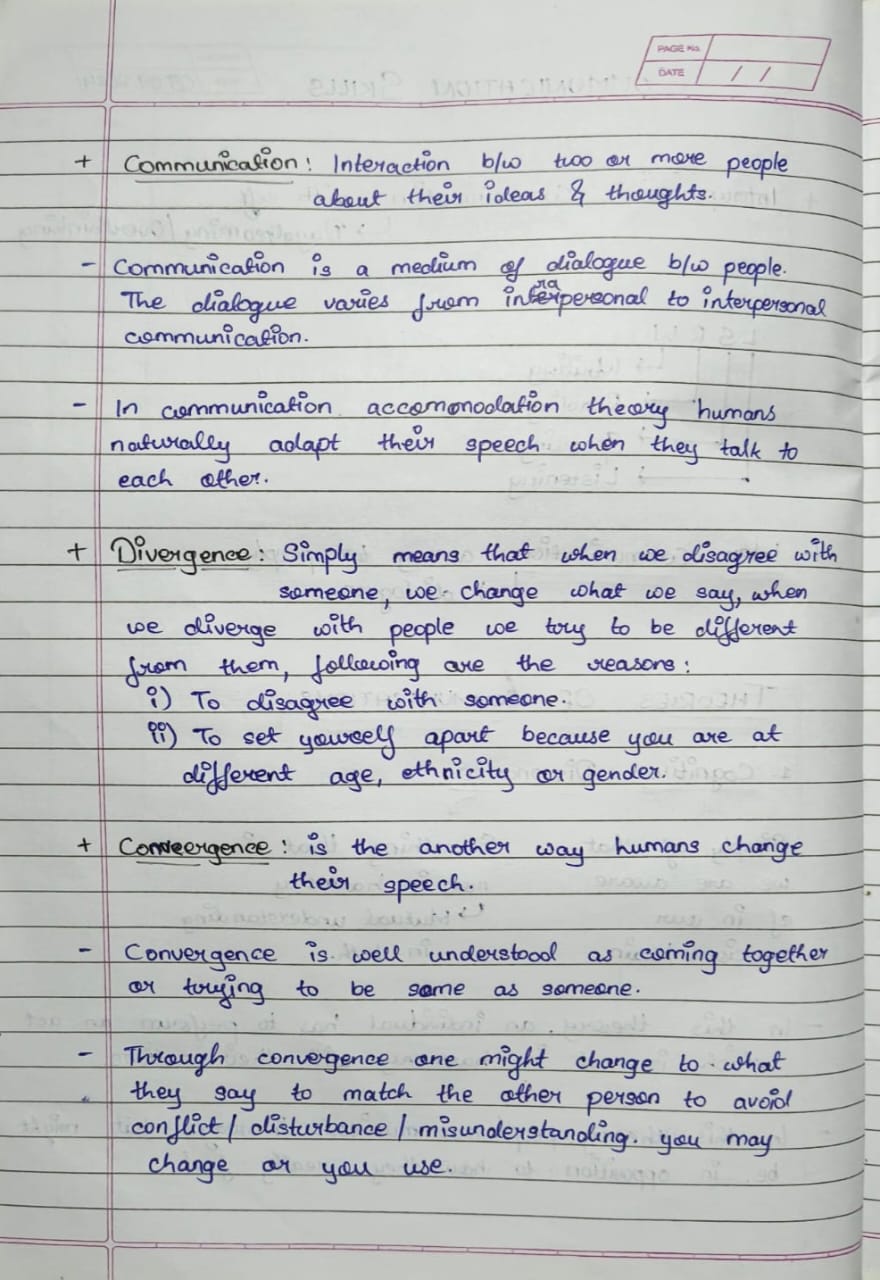 PAGE No.
DATE / /
+ Communication : Interaction b/w two or more people
about their ideas & thoughts.
- Communication is a medium of dialogue b/w people.
The dialogue varies from intrapersonal to interpersonal
communication.
- In communication accomonodation theory humans
naturally adapt their speech when they talk to
each other.
+ Divergence : Simply means that when we disagree with
someone, we change what we say, when
we diverge with people we try to be different
from them, following are the reasons :
i) To disagree with someone.
ii) To set yourself apart because you are at
different age, ethnicity or gender.
+ Convergence : is the another way humans change
their speech.
- Convergence is well understood as coming together
or trying to be same as someone.
- Through convergence one might change to what
they say to match the other person to avoid
conflict / disturbance / misunderstanding. you may
change or you use.